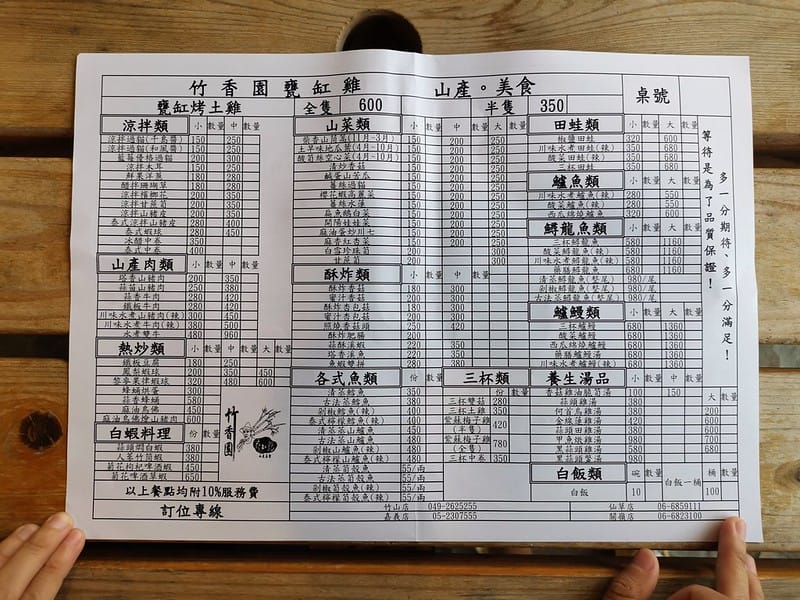 竹香園甕缸雞 山產。美食
甕缸烤土雞 全隻 600 半隻 350 桌號
涼拌類 小 數量 中 數量
涼拌過貓(千島醬) 150 250
涼拌過貓(和風醬) 150 250
藍莓優格過貓 200 300
涼拌木耳 150 250
鮮果洋蔥 180 280
醋拌珊瑚草 180 280
涼拌檳榔花 200 300
涼拌甘蔗筍 200 350
涼拌山豬皮 200 350
泰式涼拌山豬皮 280 400
泰式蝦球 280 450
冰醋中卷 350
泰式中卷 400
山產肉類 小 數量 中 數量
塔香山豬肉 200 350
蒜苗山豬肉 250 380
蒜香牛肉 280 420
鐵板牛肉 280 420
川味水煮山豬肉(辣) 300 450
川味水煮牛肉(辣) 380 500
水煮雙牛 480 960
熱炒類 小 數量 中 數量 大 數量
鐵板豆腐 180 250
鳳梨蝦球 200 350 450
黎麥果律蝦球 320 480 600
蜂蛹烘蛋 300
蒜香蜂蛹 580
麻油烏佛 450
麻油烏佛燴山豬肉 600
白蝦料理 份 數量
蒜頭燜白蝦 380
人蔘竹筒蝦 380
菊花枸杞啤酒蝦 450
菊花啤酒草蝦 650
以上餐點均附10%服務費
訂位專線
竹香園
山菜類 小 數量 中 數量 大 數量
土芋味地瓜葉(4月~10月) 150 200 250
酸筍絲空心菜(4月~10月) 150 200 250
清炒香菇 200 250
鹹蛋山苦瓜 150 200 250
薑絲過貓 150 200 250
櫻花蝦高麗菜 150 200 250
薑絲水蓮 150 200 250
扁魚鵝白菜 150 200 250
開陽娃娃菜 150 200 250
麻油蛋炒川七 150 200 250
麻香紅杏菜 150 200 250
白雪珍珠筍 200 300
甘蔗筍 200 300
酥炸類 小 數量 中 數量
酥炸香菇 180 300
蜜汁香菇 200 300
酥炸杏包菇 180 300
蜜汁杏包菇 200 300
照燒香菇頭 250 420
酥炸肥腸 200
蒜酥溪蝦 220 350
塔香溪魚 220 350
魚蝦雙拼 220 380
各式魚類 份 數量
清蒸鱈魚 350
古法蒸鱈魚 380
剁椒鱈魚(辣) 400
泰式檸檬鱈魚(辣) 400
清蒸蒸山鱸魚 450
古法蒸山鱸魚 480
剁椒山鱸魚(辣) 480
泰式檸檬山鱸魚(辣) 480
清蒸筍殼魚 55/兩
古法蒸筍殼魚 55/兩
剁椒筍殼魚(辣) 55/兩
泰式檸檬筍殼魚(辣) 55/兩
三杯類 份 數量
三杯雙菇 280
三杯土雞 350
紫蘇梅子雞(半隻) 420
紫蘇梅子雞(全隻) 780
三杯中卷 350
田蛙類 小 數量 大 數量
椒鹽田蛙 320 600
川味水煮田蛙(辣) 350 680
酸菜田蛙(辣) 350 680
三杯田蛙 350 680
鱸魚類 小 數量 大 數量
川味水煮鱸魚(辣) 280 550
酸菜鱸魚(辣) 280 550
西瓜綿燒鱸魚 320 600
鱘龍魚類 小 數量 大 數量
三杯鱘龍魚 580 1160
酸菜鱘龍魚(辣) 580 1160
川味水煮鱘龍魚(辣) 580 1160
藥膳鱘龍魚 680 1160
清蒸鱘龍魚(整尾) 980/尾
剁椒鱘龍魚(整尾) 980/尾
古法蒸鱘龍魚(整尾) 980/尾
鱸鰻類 小 數量 大 數量
三杯鱸鰻 680 1360
酸菜鱸鰻(辣) 680 1360
西瓜綿燒鱸鰻 680 1360
藥膳鱸鰻 680 1360
川味水煮鱸鰻(辣) 680 1360
養生湯品 小 數量 中 數量 大 數量
香菇雞油脆筍湯 100 150
蒜頭雞湯 380
何首烏雞湯 380 200
金線蓮雞湯 420 600
蒜頭田雞湯 380 600
甲魚燉雞湯 980 700
黑蒜頭雞湯 580 680
黑蒜頭鱉湯 980
白飯類 碗 數量 桶 數量
白飯 10 白飯一桶 100
多一分期待、多一分滿足！
等待是為了品質保證！
竹山店 049-2625255 仙草店 06-6859111
嘉義店 05-2307555 關嶺店 06-6823100